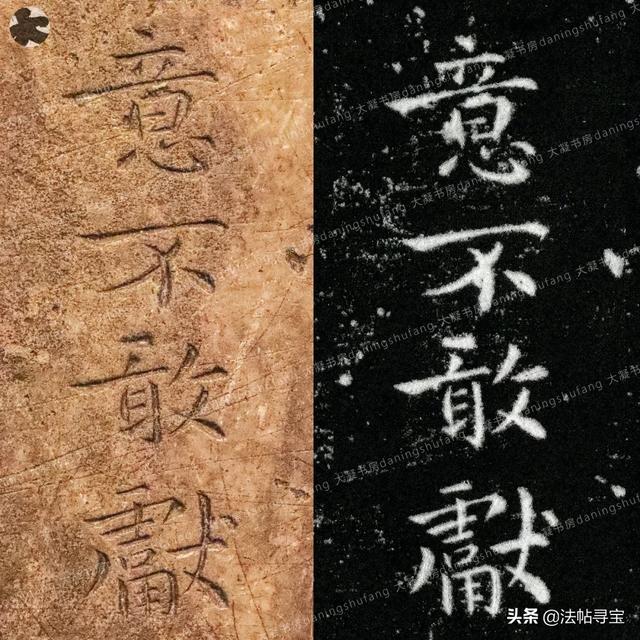 意不敢獻
意不敢獻
大凝书房daningshufang
头条 @法帖寻宝